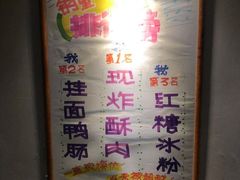 销量
排行榜
我
第2名
挂面鸭肠
第1名
现炸酥肉
我
第3名
红糖冰粉